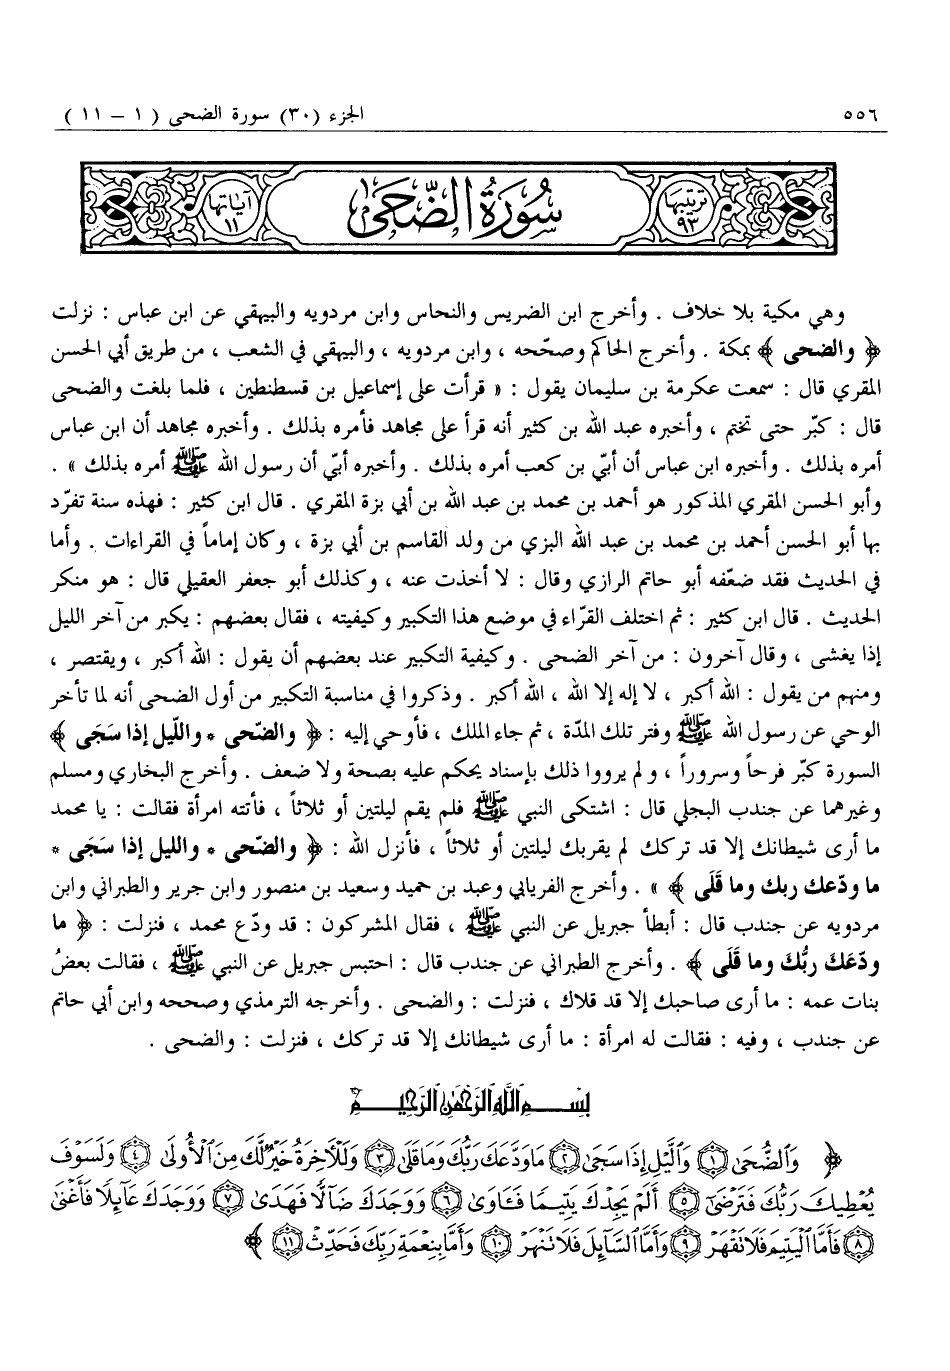 ٥٥٦ الجزء (٣٠) سورة الضحى ( ١ – ١١ )
ترتيبها ٩٣ سورة الضحى آياتها ١١
وهي مكية بلا خلاف . وأخرج ابن الضريس والنحاس وابن مردويه والبيهقي عن ابن عباس : نزلت
﴿ والضحى ﴾ بمكة . وأخرج الحاكم وصحّحه ، وابن مردويه ، والبيهقي في الشعب ، من طريق أبي الحسن
المقري قال : سمعت عكرمة بن سليمان يقول : « قرأت على إسماعيل بن قسطنطين ، فلما بلغت والضحى
قال : كبّر حتى تختم ، وأخبره عبد الله بن كثير أنه قرأ على مجاهد فأمره بذلك . وأخبره مجاهد أن ابن عباس
أمره بذلك . وأخبره ابن عباس أن أبيّ بن كعب أمره بذلك . وأخبره أبيّ أن رسول الله ﷺ أمره بذلك » .
وأبو الحسن المقري المذكور هو أحمد بن محمد بن عبد الله بن أبي بزة المقري . قال ابن كثير : فهذه سنة تفرّد
بها أبو الحسن أحمد بن محمد بن عبد الله البزي من ولد القاسم بن أبي بزة ، وكان إماماً في القراءات . وأما
في الحديث فقد ضعّفه أبو حاتم الرازي وقال : لا أحدّث عنه ، وكذلك أبو جعفر العقيلي قال : هو منكر
الحديث . قال ابن كثير : ثم اختلف القرّاء في موضع هذا التكبير وكيفيته ، فقال بعضهم : يكبر من آخر الليل
إذا يغشى ، وقال آخرون : من آخر الضحى . وكيفية التكبير عند بعضهم أن يقول : الله أكبر ، ويقتصر ،
ومنهم من يقول : الله أكبر ، لا إله إلا الله ، الله أكبر . وذكروا في مناسبة التكبير من أول الضحى أنه لما تأخر
الوحي عن رسول الله ﷺ وفتر تلك المدّة ، ثم جاء الملك ، فأوحي إليه : ﴿ والضّحى * واللّيل إذا سَجَى ﴾
السورة كبّر فرحاً وسروراً ، ولم يرووا ذلك بإسناد يحكم عليه بصحة ولا ضعف . وأخرج البخاري ومسلم
وغيرهما عن جندب البجلي قال : اشتكى النبي ﷺ فلم يقم ليلتين أو ثلاثاً ، فأتته امرأة فقالت : يا محمد
ما أرى شيطانك إلا قد تركك لم يقربك ليلتين أو ثلاثاً ، فأنزل الله : ﴿ والضّحى * والليل إذا سَجَى *
ما ودّعك ربك وما قَلَى ﴾ » . وأخرج الفريابي وعبد بن حميد وسعيد بن منصور وابن جرير والطبراني وابن
مردويه عن جندب قال : أبطأ جبريل عن النبي ﷺ ، فقال المشركون : قد ودّع محمد ، فنزلت : ﴿ ما
ودّعَكَ ربُّكَ وما قَلَى ﴾ . وأخرج الطبراني عن جندب قال : احتبس جبريل عن النبي ﷺ ، فقالت بعضُ
بنات عمه : ما أرى صاحبك إلا قد قلاك ، فنزلت : والضحى . وأخرجه الترمذي وصححه وابن أبي حاتم
عن جندب ، وفيه : فقالت له امرأة : ما أرى شيطانك إلا قد تركك ، فنزلت : والضحى .
بِسْمِ اللَّهِ الرَّحْمَٰنِ الرَّحِيمِ
﴿ وَٱلضُّحَىٰ ١ وَٱلَّيْلِ إِذَا سَجَىٰ ٢ مَا وَدَّعَكَ رَبُّكَ وَمَا قَلَىٰ ٣ وَلَلْآخِرَةُ خَيْرٌ لَّكَ مِنَ ٱلْأُولَىٰ ٤ وَلَسَوْفَ
يُعْطِيكَ رَبُّكَ فَتَرْضَىٰٓ ٥ أَلَمْ يَجِدْكَ يَتِيمًا فَـَٔاوَىٰ ٦ وَوَجَدَكَ ضَآلًّا فَهَدَىٰ ٧ وَوَجَدَكَ عَآئِلًا فَأَغْنَىٰ
٨ فَأَمَّا ٱلْيَتِيمَ فَلَا تَقْهَرْ ٩ وَأَمَّا ٱلسَّآئِلَ فَلَا تَنْهَرْ ١٠ وَأَمَّا بِنِعْمَةِ رَبِّكَ فَحَدِّثْ ١١ ﴾